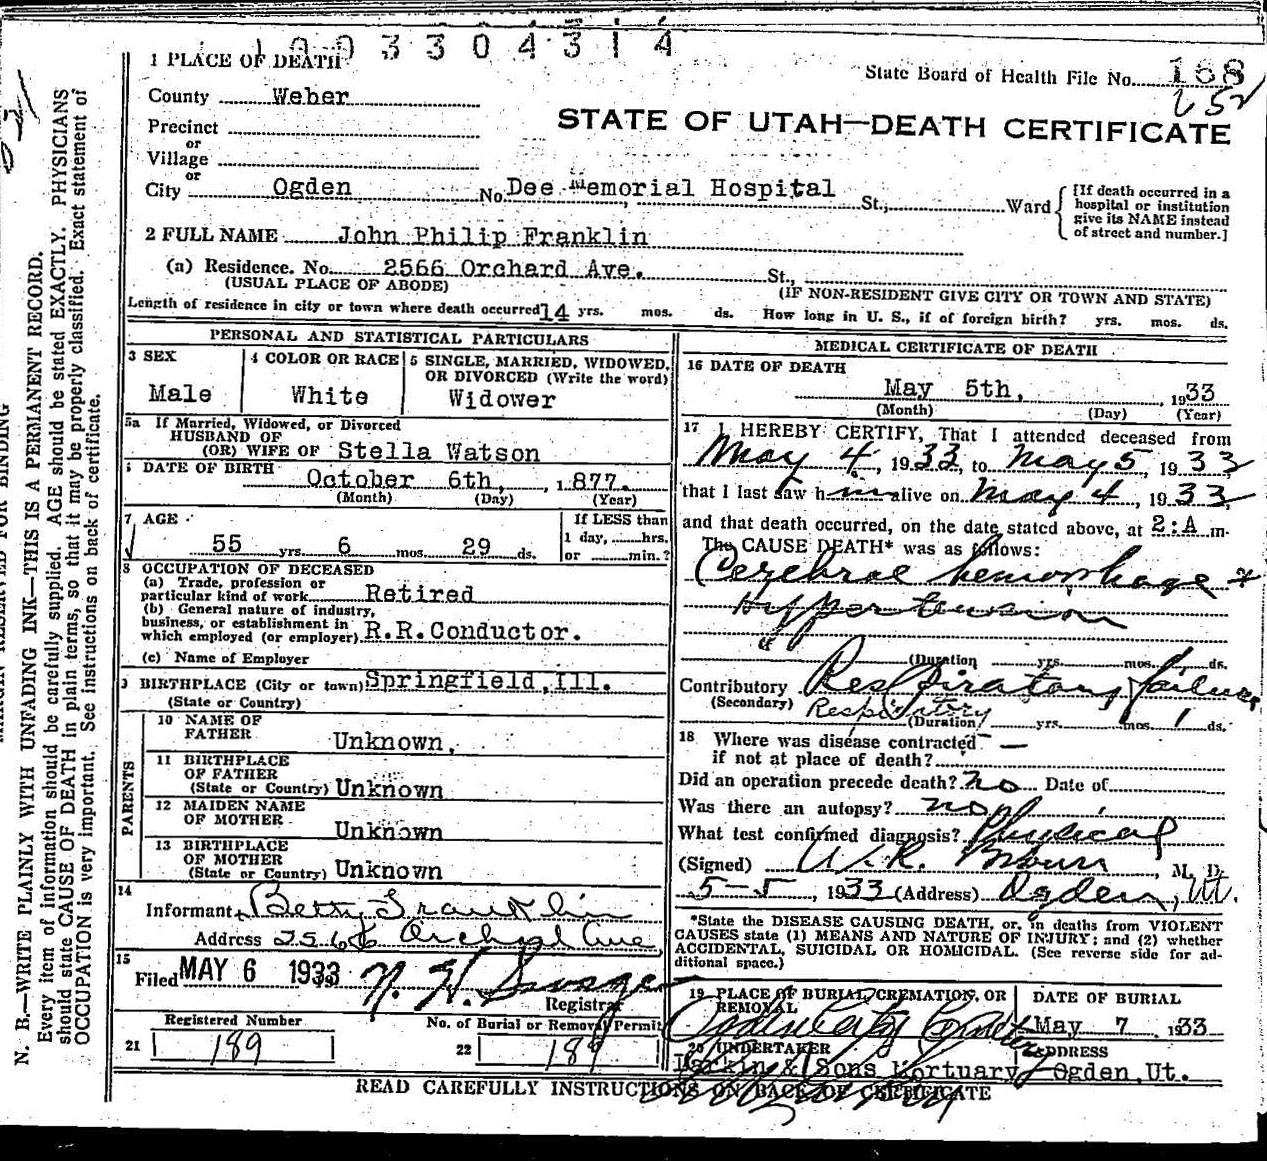 1003304314
1 PLACE OF DEATH
State Board of Health File No. 168
252
County Weber
STATE OF UTAH—DEATH CERTIFICATE
Precinct
or
Village
or
City Ogden No. Dee Memorial Hospital St., Ward
[If death occurred in a
hospital or institution
give its NAME instead
of street and number.]
2 FULL NAME John Philip Franklin
(a) Residence. No. 2566 Orchard Ave. St.,
(USUAL PLACE OF ABODE) (IF NON-RESIDENT GIVE CITY OR TOWN AND STATE)
Length of residence in city or town where death occurred 14 yrs. mos. ds. How long in U. S., if of foreign birth? yrs. mos. ds.
PERSONAL AND STATISTICAL PARTICULARS
3 SEX
Male
4 COLOR OR RACE
White
5 SINGLE, MARRIED, WIDOWED,
OR DIVORCED (Write the word)
Widower
5a If Married, Widowed, or Divorced
HUSBAND OF
(OR) WIFE OF Stella Watson
DATE OF BIRTH
October 6th, 1877.
(Month) (Day) (Year)
7 AGE
55 yrs. 6 mos. 29 ds.
If LESS than
1 day, hrs.
or min.?
8 OCCUPATION OF DECEASED
(a) Trade, profession or
particular kind of work Retired
(b) General nature of industry,
business, or establishment in
which employed (or employer) R.R.Conductor.
(c) Name of Employer
9 BIRTHPLACE (City or town) Springfield, Ill.
(State or Country)
PARENTS
10 NAME OF
FATHER Unknown,
11 BIRTHPLACE
OF FATHER
(State or Country) Unknown
12 MAIDEN NAME
OF MOTHER Unknown
13 BIRTHPLACE
OF MOTHER
(State or Country) Unknown
14
Informant Betty Franklin
Address 2566 Orchard Ave
15
Filed MAY 6 1933 N. H. Savage
Registrar
Registered Number
21 189
No. of Burial or Removal Permit
22 189
MEDICAL CERTIFICATE OF DEATH
16 DATE OF DEATH
May 5th, 1933
(Month) (Day) (Year)
17 I HEREBY CERTIFY, That I attended deceased from
May 4, 1933, to May 5, 1933
that I last saw him alive on May 4, 1933,
and that death occurred, on the date stated above, at 2:A m.
The CAUSE DEATH* was as follows:
Cerebral hemorrhage
Hypertension
(Duration yrs. mos. 1 ds.
Contributory Respiratory failure
(Secondary) Respiratory
(Duration) yrs. mos. 1 ds.
18 Where was disease contracted
if not at place of death? —
Did an operation precede death? no Date of
Was there an autopsy? no
What test confirmed diagnosis? Physical
(Signed) W. R. Brown, M. D.
5-5 1933 (Address) Ogden, Ut.
*State the DISEASE CAUSING DEATH, or, in deaths from VIOLENT
CAUSES state (1) MEANS AND NATURE OF INJURY; and (2) whether
ACCIDENTAL, SUICIDAL OR HOMICIDAL. (See reverse side for ad-
ditional space.)
19 PLACE OF BURIAL, CREMATION, OR
REMOVAL
Ogden City Cemetery
DATE OF BURIAL
May 7 1933
20 UNDERTAKER
Larkin & Sons Mortuary
ADDRESS
Ogden, Ut.
READ CAREFULLY INSTRUCTIONS ON BACK OF CERTIFICATE
MARGIN RESERVED FOR BINDING
N. B.—WRITE PLAINLY WITH UNFADING INK—THIS IS A PERMANENT RECORD.
Every item of information should be carefully supplied. AGE should be stated EXACTLY. PHYSICIANS
should state CAUSE OF DEATH in plain terms, so that it may be properly classified. Exact statement of
OCCUPATION is very important. See instructions on back of certificate.